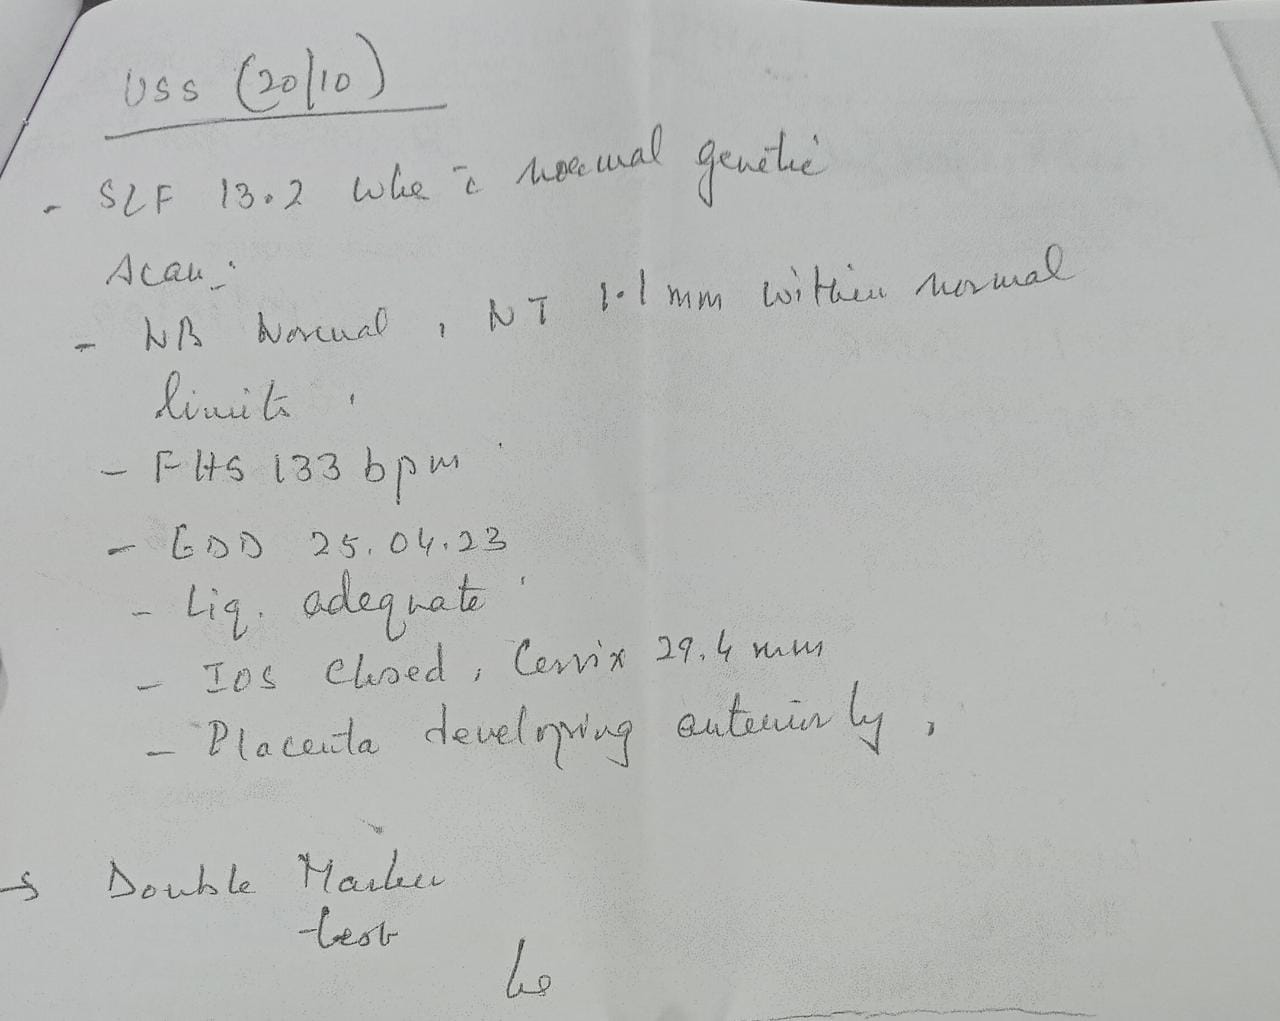 USS (20/10)
- SLF 13.2 wks c̄ normal genetic
scan:
- NB Normal, NT 1.1 mm within normal
limits.
- FHS 133 bpm
- EDD 25.04.23
- Liq. adequate
- IOS closed, Cervix 29.4 mm
- Placenta developing anteriorly,
→ Double Marker
test